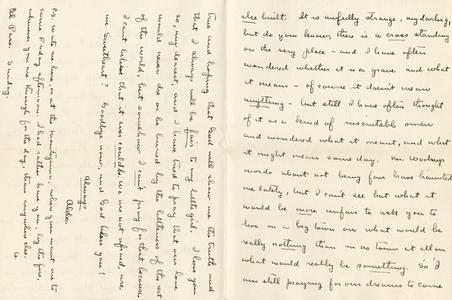 else built. It is awfully strange, my darling,
but do you know, this is a cross standing
on the very place – and I have often
wondered whether it is a grave and what
it means – of course it doesn't mean
anything – but still I have often thought
of it as a kind of inscrutable omen
and wondered what it meant, and what
it might mean some day. Mr.
words about not being fair have haunted
me lately, but I can't see but what it
would be more unfair to ask you to
live in a big town on what would be
really nothing than in no town at all on
what would really be something. So I
am still praying for our dreams to come
true and hoping that God will show me the truth and
that I always will be fair to my little girl. I love you
so, my dearest, and I have tried to pray that our love
would never die or be by the littleness of the rest
of the world, but somehow I can't pray for that because
I can't believe that it ever could be. We are not afraid, are
we Sweetheart? Goodbye now, and God bless you!
Always
Alden
P.S. Write me here, or at the Montezuma, when you want me to
come Friday afternoon. I had rather have you, by the fire,
you are through for the day, than anywhere else.
El Paso. Sunday. a.